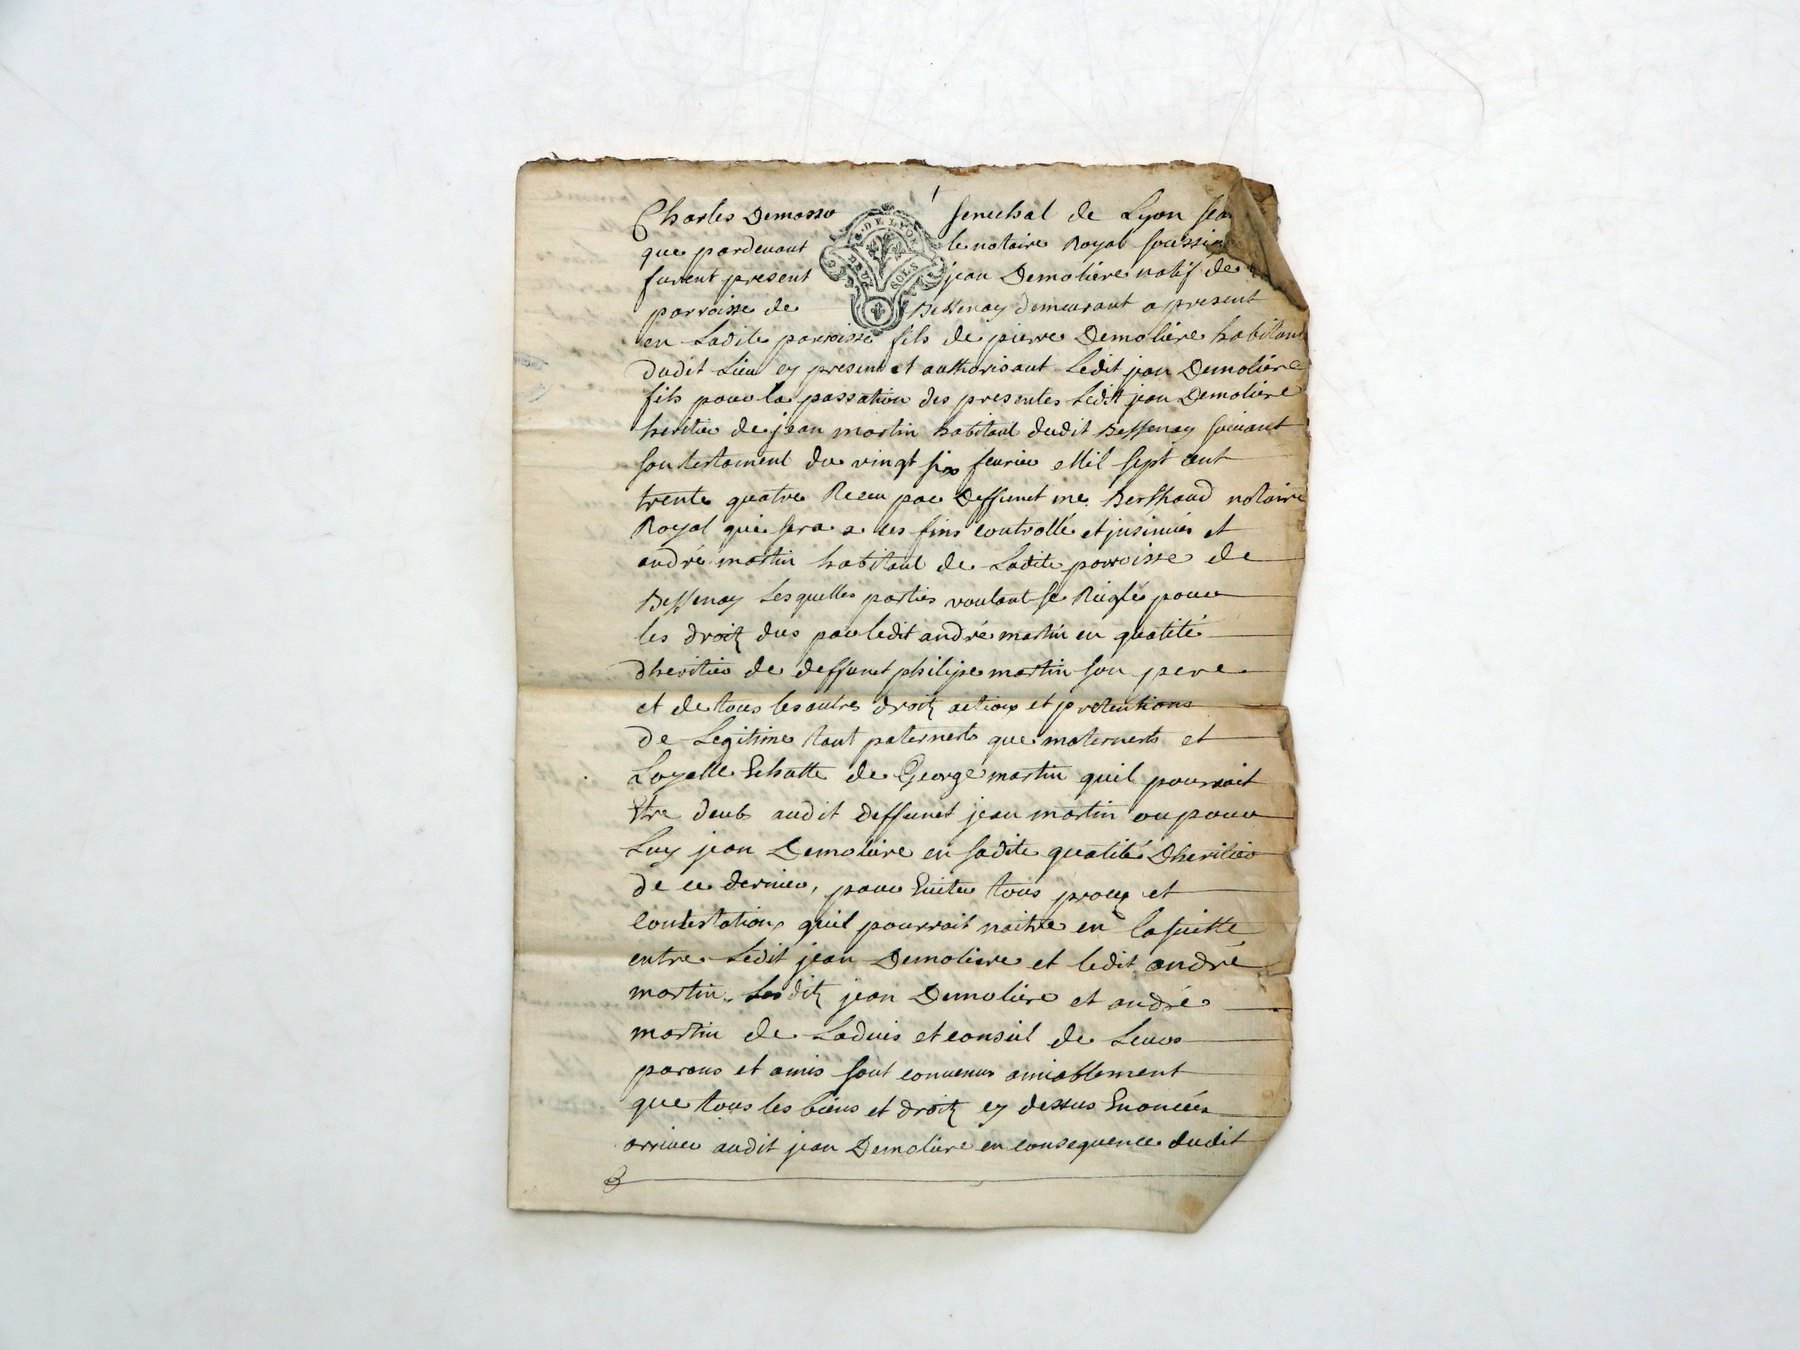 Charles Demasso senechal de Lyon
G. DE LYON
DEUX SOLS
que pardevant le notaire Royal soussi
furent present jean Demoliere natif de
parroisse de Bessenay demeurant a present
en Ladite parroisse fils de pierre Demoliere habitant
dudit Lieu cy present et authorisant Ledit jean Demoliere
fils pour la passation des presentes Ledit jean Demoliere
heritier de jean martin habitant dudit Bessenay suivant
son testament du vingt six fevrier Mil sept cent
trente quatre Receu par Deffunct me. Berthaud notaire
Royal qui sera a ces fins controllé et jnsinué et
andré martin habitant de Ladite parroisse de
Bessenay Lesquelles parties voulant se Reigler pour
les droitz dus par ledit andré martin en qualité
dheritier de deffunct philipe martin son pere
et de tous les autres droitz actions et pretentions
de Legitime tant paternels que maternels et
Loyalle Echutte de George martin quil pourroit
Etre deub audit deffunct jean martin ou pour
Luy jean Demoliere en sadite qualité Dheritier
de ce dernier, pour Eviter tous proces et
Contestations quil pourroit naitre en la suitte
entre Ledit jean Demoliere et ledit andré
martin. Lesditz jean Demoliere et andré
martin de Ladvis et conseil de Leurs
parans et amis sont convenus amiablement
que tous les biens et droitz cy dessus Enoncés
arrivés audit jean Demoliere en consequence dudit